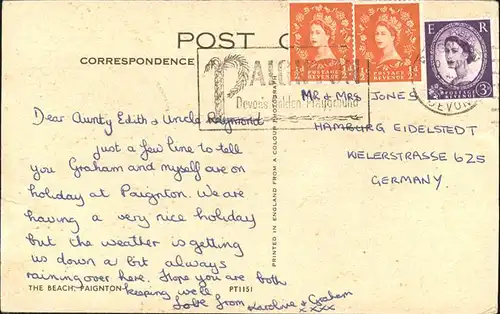 POST C
CORRESPONDENCE
PAIGNTON
Devon's Golden Playground
POSTAGE REVENUE
POSTAGE REVENUE
E R
POSTAGE 3D
DEVON
MR & MRS JONES
HAMBURG EIDELSTEDT
KIELERSTRASSE 625
GERMANY.
Dear Aunty Edith & Uncle Raymond
just a few line to tell
you Graham and myself are on
holiday at Paignton. We are
having a very nice holiday
but the weather is getting
us down a bit always
raining over here. Hope you are both
keeping well
Love from Karoline & Graham
xxxx
THE BEACH, PAIGNTON
PT1151
PRINTED IN ENGLAND FROM A COLOUR PHOTOGRAPH